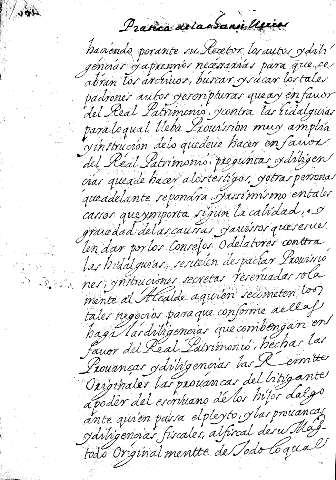 haciendo porante su Recetor los autos y dili
gencias y apremios necesarias para que, se
abran los archivos, buscar, y sacar los tales
padrones autos y escripturas que ay en favor
del Real Patrimonio, y contra las hidalguias
para lo qual lleba Provission muy amplia
y instrución de lo que deve hacer en favor
del Real Patrimonio, preguntas y diligen
cias que a de hacer a los testigos, y otras personas
que adelante se pondra y assimismo en tales
cassos que ymporta sigun la calidad, y
gravedad de las caussas y avissos que se sue
len dar por los Consejos o delatores contra
las hidalguias, se suelen despachar Provissio
nes, y nstituciones secretas reservadas sola
mente al Alcalde a quien se cometen los
tales negocios para que conforme a ellas
haga las diligencias que combengan en
favor del Real Patrimonio, hechas las
Provanças y diligencias las Remitte
Originales las provancas del litigante
a poder del escribano de los hijos dalgo
ante quien passa el pleyto, y las provancas
y diligencias fiscales, al fiscal de su Magd
todo Original mentte de todo lo qual